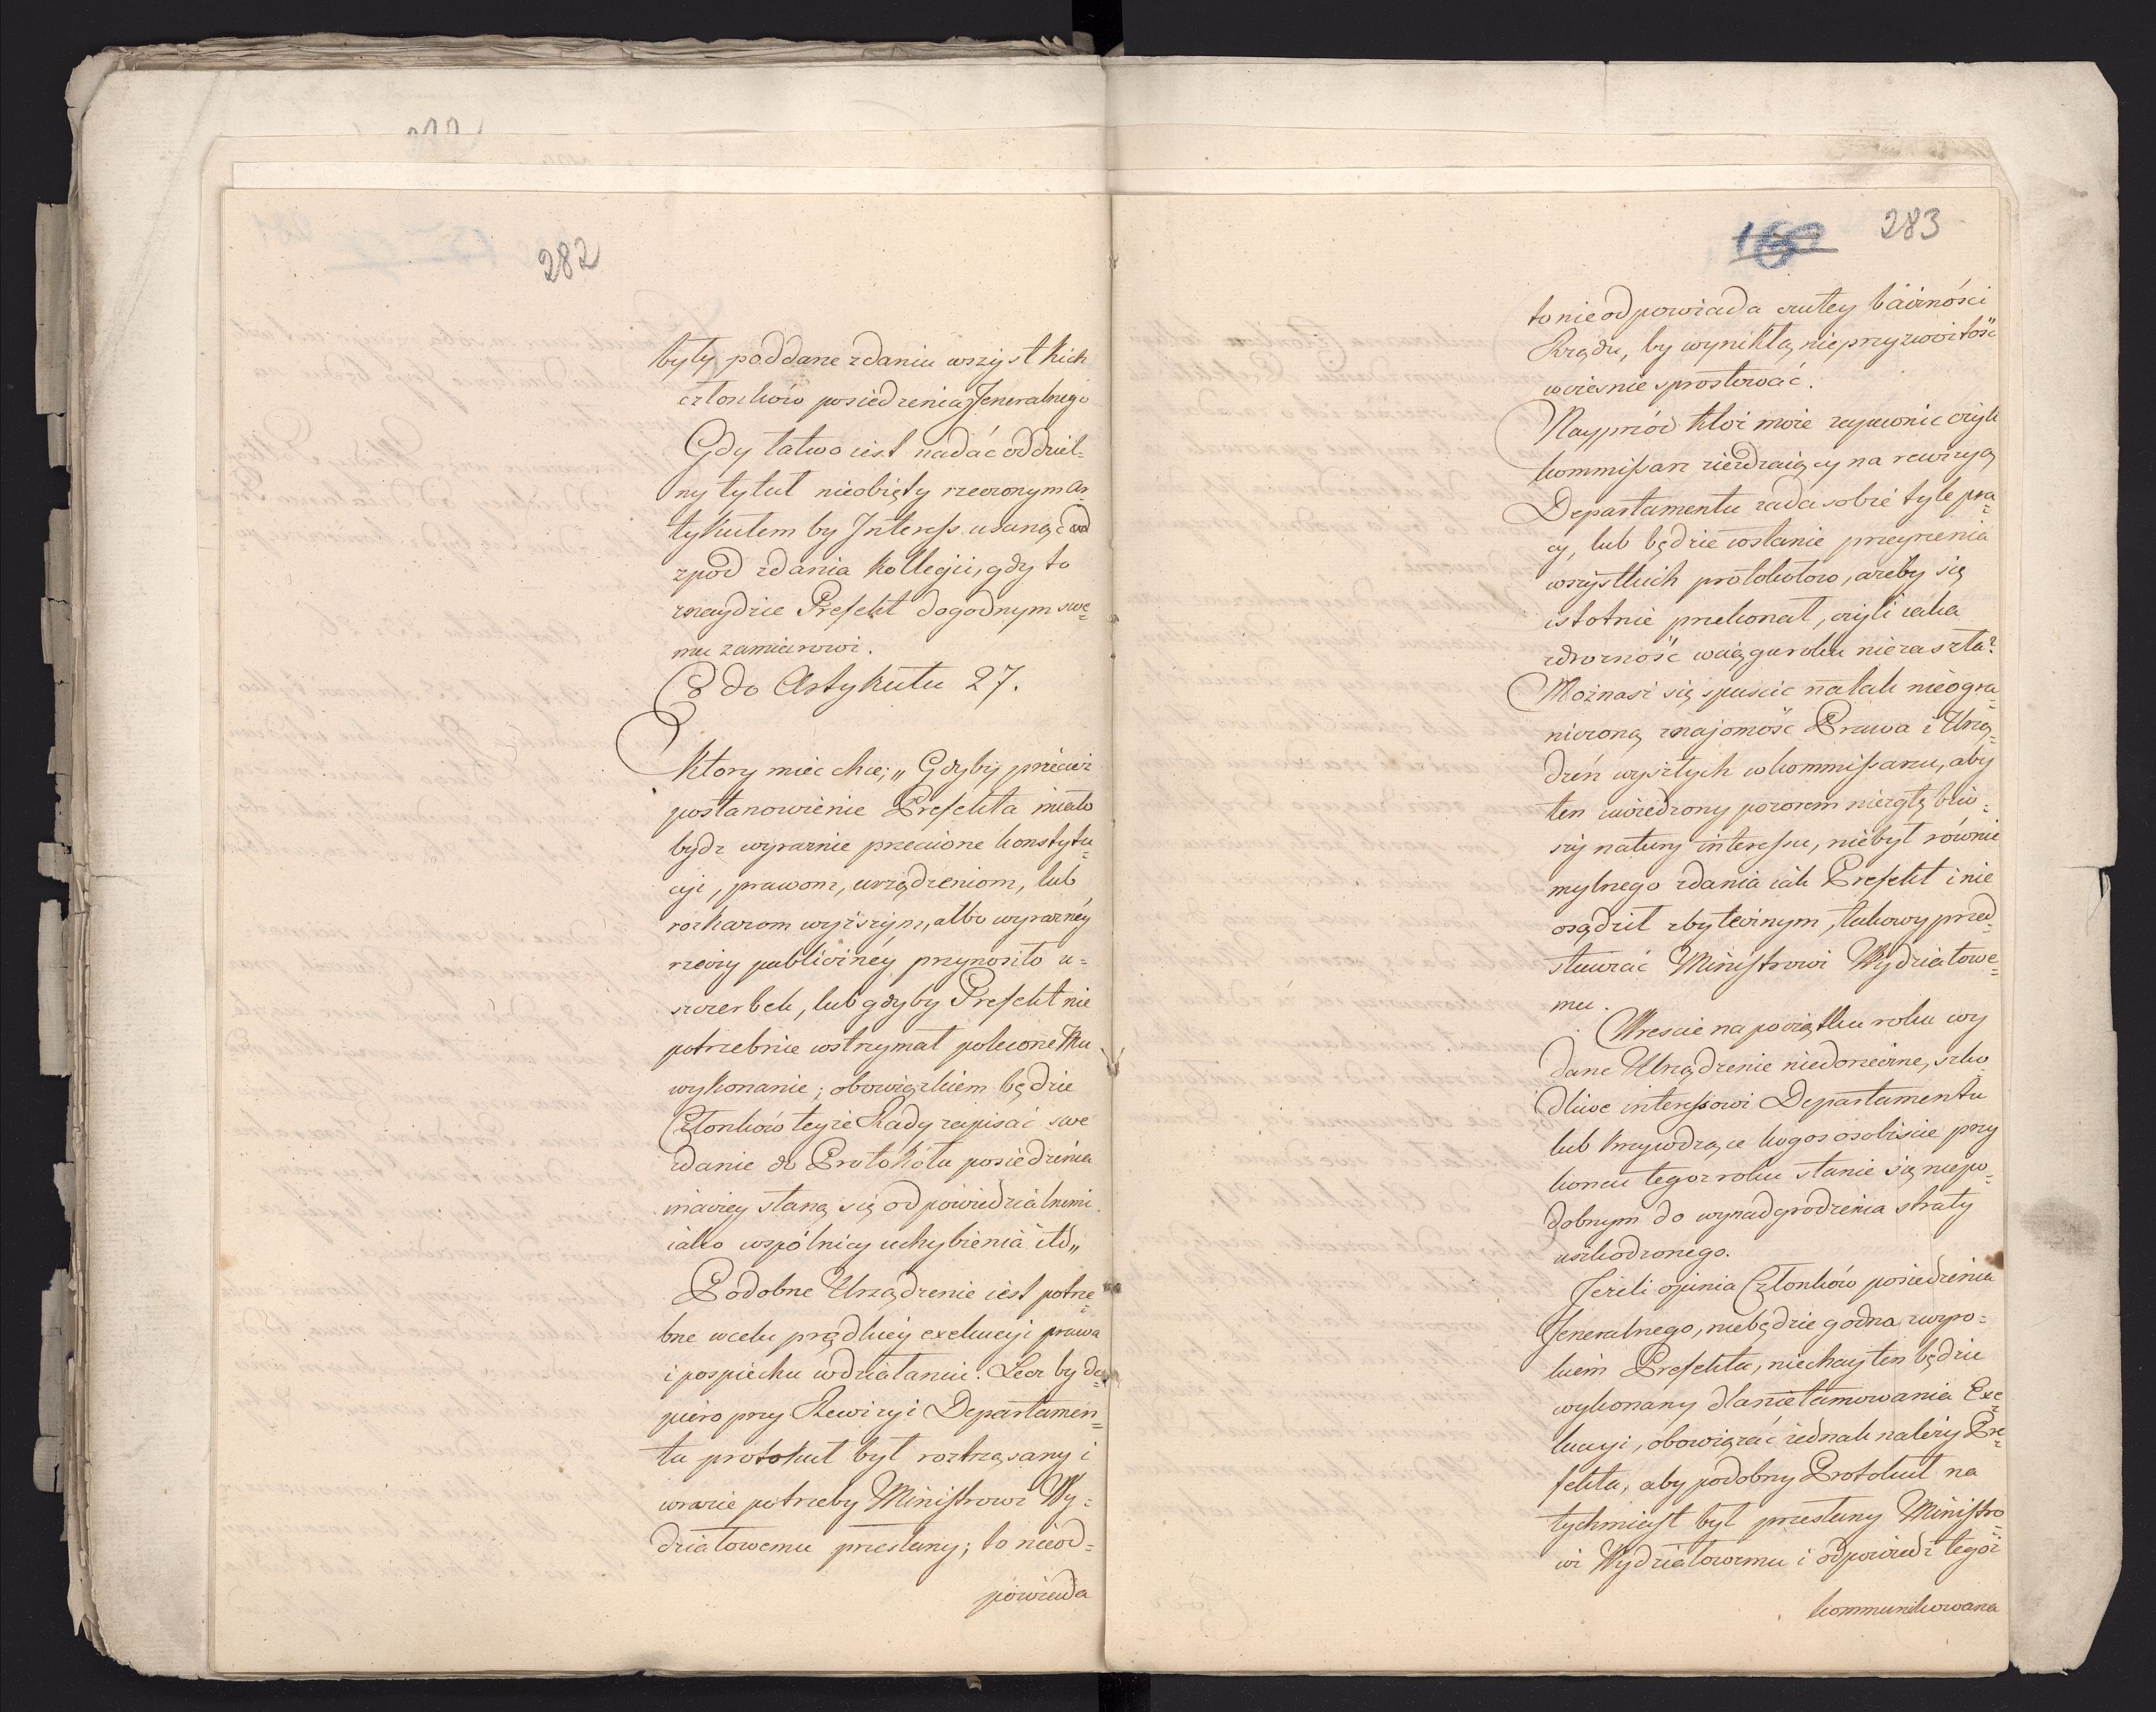 282
były poddane zdaniu wszystkich
członków posiedzenia Jeneralnego
Gdy łatwo iest nadać oddziel=
ny tytuł nieobięty rzeczonym ar=
tykułem by Interess usunąć
zpod zdania Kollegii, gdy to
znaydzie Prefekt dogodnym swe=
mu zamiarowi.
Co do Artykułu 27.
Ktory miec chce; „Gdyby przeciez
postanowienie Prefekta miało
bydz wyraznie przeciwne konstytu=
cyi, prawom, urządzeniom, lub
rozkazom wyższym, albo wyrazney
rzeczy publiczney przynosiło u=
szczerbek, lub gdyby Prefekt nie
potrzebnie wstrzymał polecone Mu
wykonanie; obowiązkiem będzie
Członków teyże Rady zapisać swe
zdanie do Protokółu posiedzenia
inaczey staną się odpowiedzialnemi
iako wspólnicy uchybienia itd„
Podobne Urządzenie iest potrze=
bne w celu prędkiey exekucyi prawa
i pospiechu w działaniu. Lecz by do=
piero przy Rewizyi Departamen=
tu protokuł był roztrząsany i
w razie potrzeby Ministrowi Wy=
działowemu przesłany; to nieod=
powiada
160 283
to nieodpowiada czułey baczności
Rządu, by wynikłą nieprzyzwoitość
wcześnie sprostować.
Nayprzód któż może zapewnic czyli
kommissarz zieżdzaiący na rewizyą
Departamentu zada sobie tyle pra=
cy, lub będzie wstanie przeyrzenia
wszystkich protokołow, ażeby się
istotnie przekonał, czyli iaka
zdrożność wciągu roku nie zaszła?
Możnasz się spuscic na tak nieogra=
niczoną znajomość Prawa i Urzą=
dzeń wyszłych w kommissarzu, aby
ten uwiedziony pozorem niezgłębiw=
szy natury interessu, niebył równie
mylnego zdania iak Prefekt i nie
osądził zbytecznym, takowy przed=
stawiać Ministrowi Wydziałowe=
mu.
Wreszcie na początku roku wy
dane Urządzenie niedorzeczne, szko
dliwe interessowi Departamentu
lub krzywdzące kogos osobiscie przy
koncu tegoz roku stanie się niepo=
dobnym do wynadgrodzenia straty
uszkodzonego.
Jeżeli opinia Członków posiedzenia
Jeneralnego, niebędzie godna z wyro=
kiem Prefekta, niechay ten będzie
wykonany dla nietamowania Exe=
kucyi, obowiązać iednak należy Pre=
fekta, aby podobny Protokuł na
tychmiast był przesłany Ministro=
wi Wydziałowemu i odpowiedz tegoż
kommunikowana